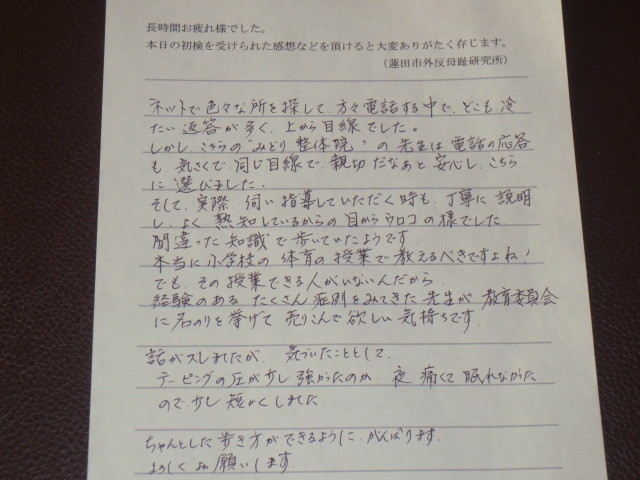 長時間お疲れ様でした。
本日の初検を受けられた感想などを頂けると大変ありがたく存じます。
（蓮田市外反母趾研究所）
ネットで色々な所を探して、方々電話する中で、どこも冷
たい返答が多く、上から目線でした。
しかし、こちらの"みどり整体院"の先生は電話の応答
も、気さくで、同じ目線で、親切だなあと安心し、こちら
に選びました。
そして、実際、伺い指導していただく時も、丁寧に説明
し、よく熟知しているからの目からウロコの様でした。
間違った知識で歩いていたようです。
本当に小学校の体育の授業で教えるべきですよね！
でも、その授業できる人がいないんだから、
経験のあるたくさん症例をみてきた先生が教育委員会
に名のりを挙げて売りこんで欲しい気持ちです。
話がスレましたが、気づいたこととして、
テーピングの圧が少し強かったのか、夜痛くて眠れなかった
ので、少し短かくしました
ちゃんとした歩き方ができるように、がんばります。
よろしくお願いします。